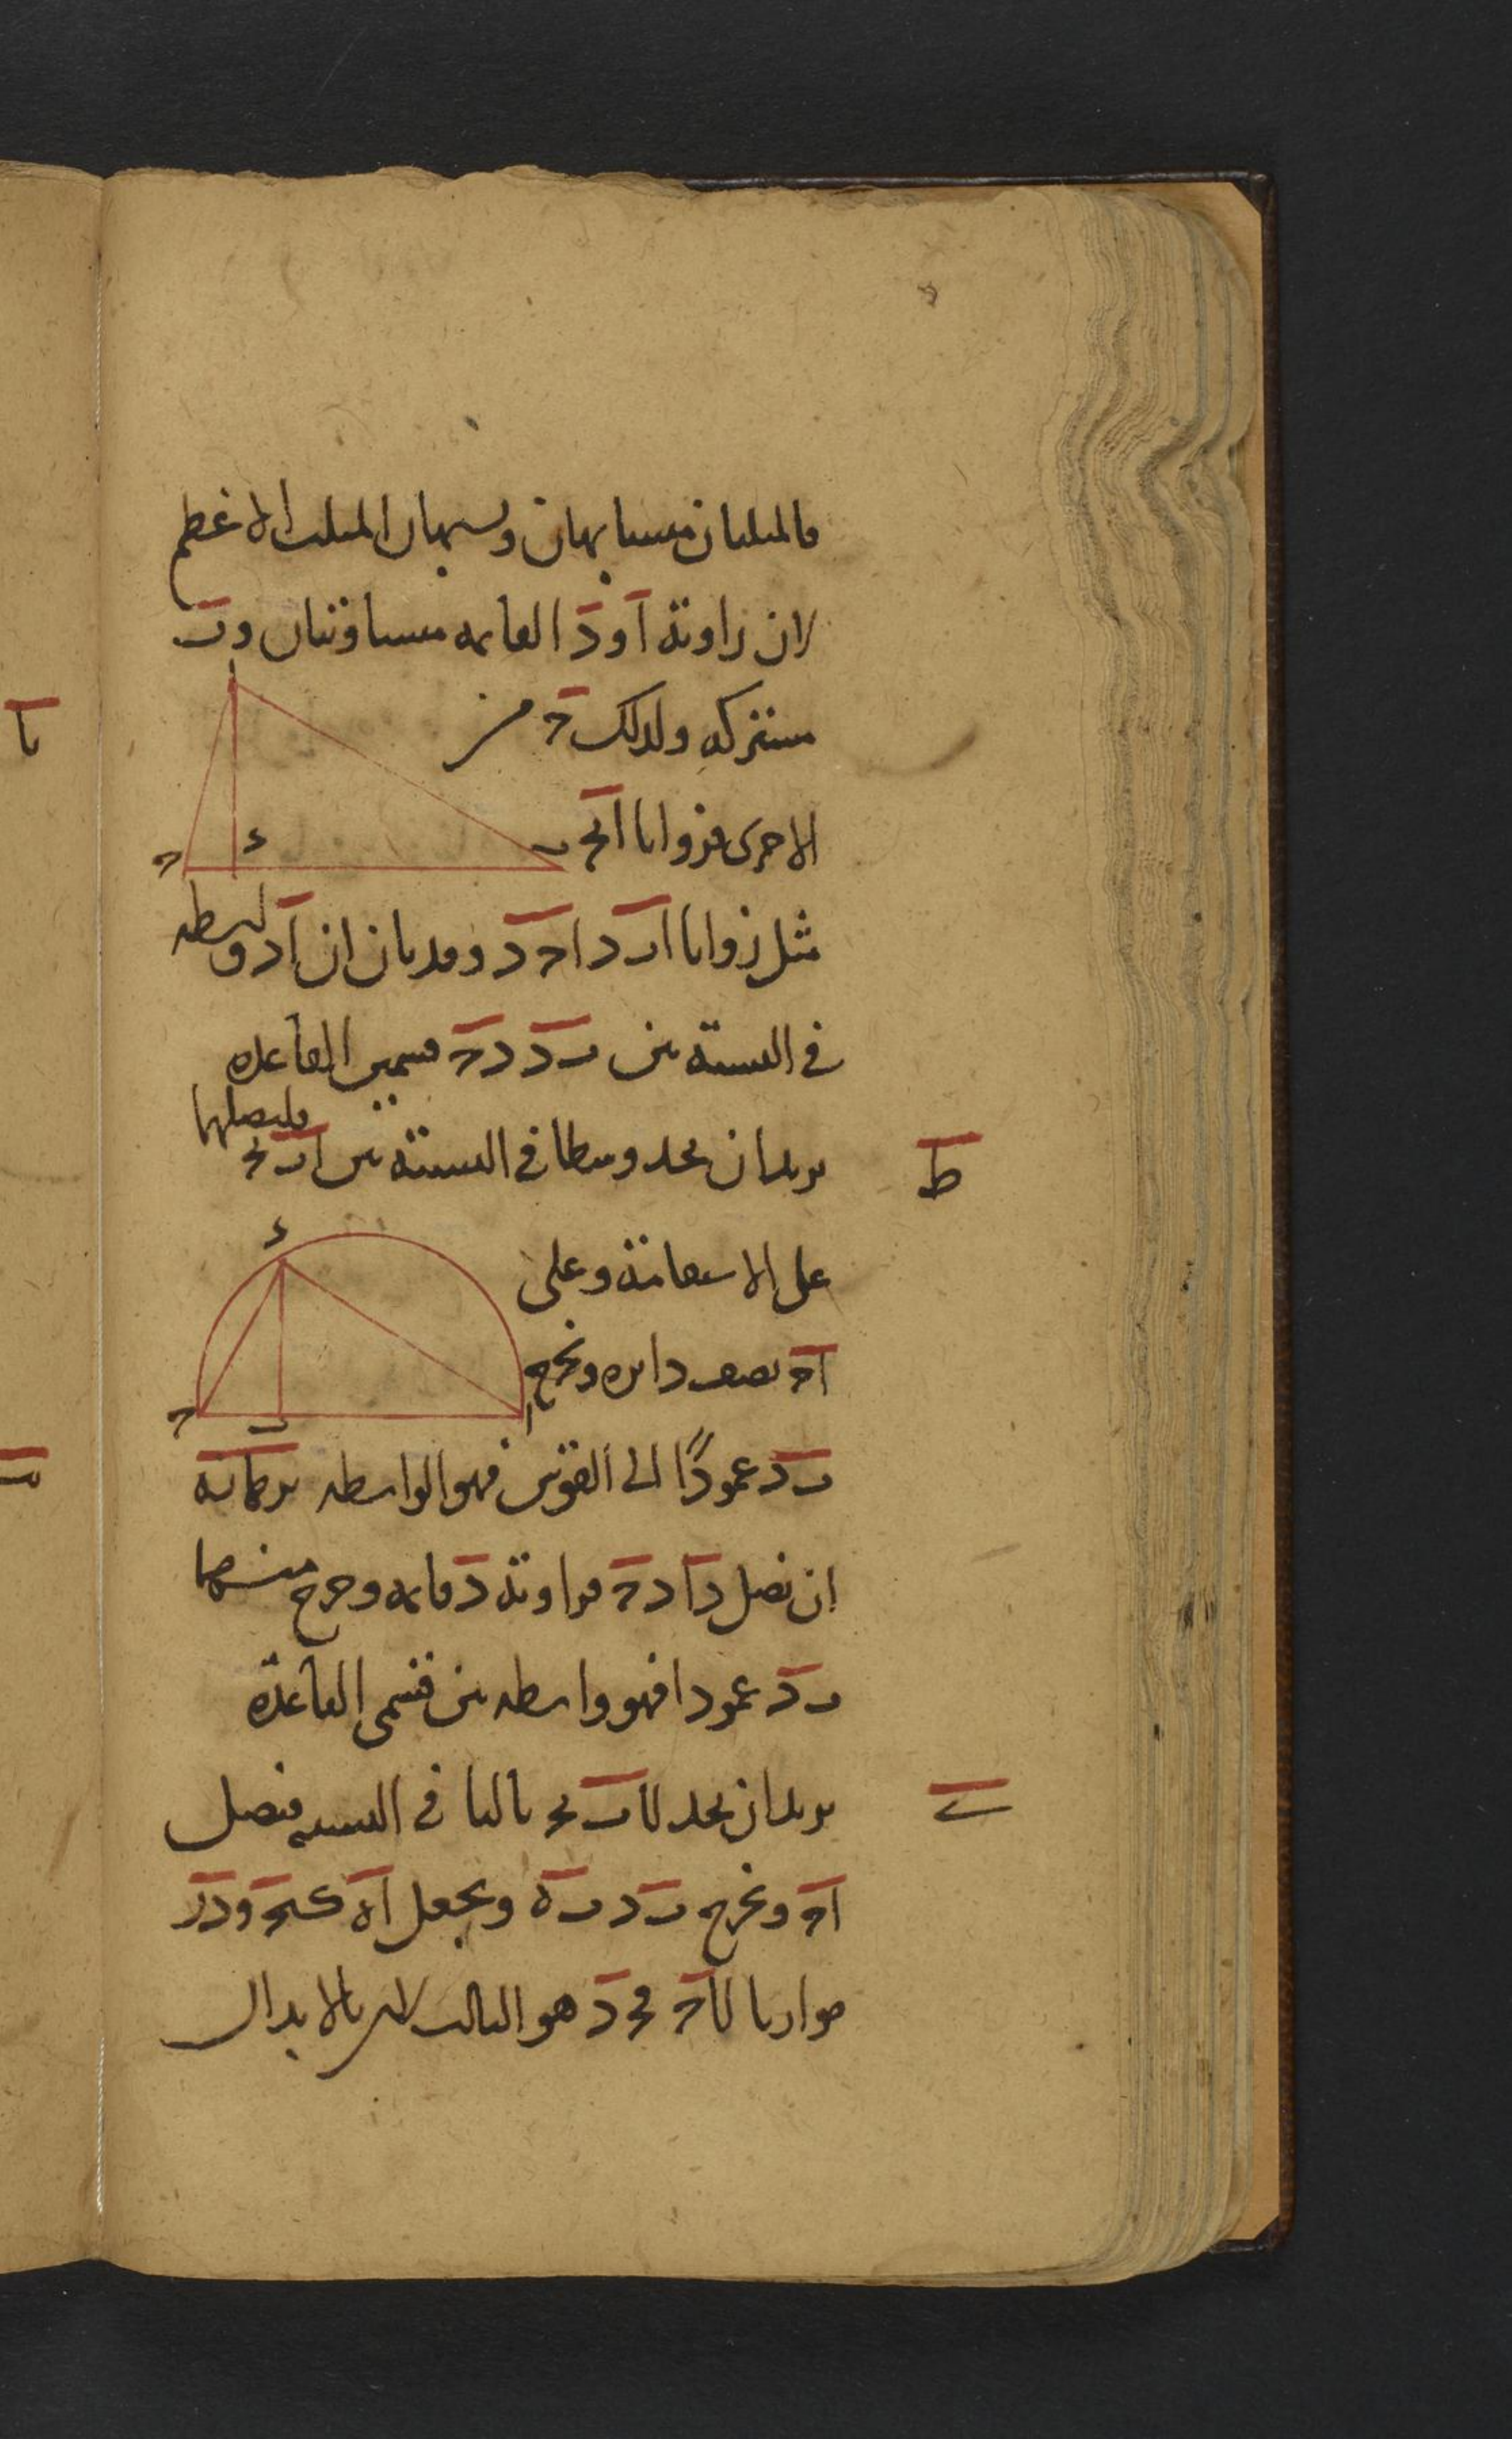 فالمثلثان متشابهان ويشبهان المثلث الاعظم
لان زاوية آ و دَ القايمة متساويتان و بَ
مشتركة ولذلك حَ من
الاخرى فزوايا ابج
مثل زوايا ابد احد وقد بان ان اد واسطة
في النسبة بين بد دح قسمين القاعدة
ط
نريد ان نجد وسطا في النسبة بين اب بج فليصلهما
على الاستقامة وعلى
اح نصف دايرة ونخرج
بد عمودًا الى القوس فهو الواسطة برهانه
ان نصل دا دح فزاوية د قايمة وخرج منها
بد عمودا فهو واسطة بين قسمي القاعدة
ي
نريد ان نجد لاب بج ثالثا في النسبة فنصل
اح ونخرج بد به ونجعل اه كبح ودر
موازيا لاح فجد هو الثالث لان بالابدال
ا
د
ح
ب
د
ا
ب
ح
يا
يب